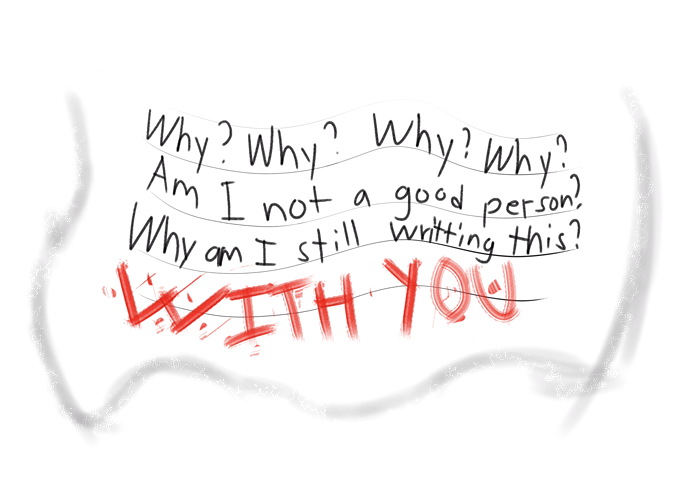 Why? Why? Why? Why?
Am I not a good person?
Why am I still writting this?
WITH YOU